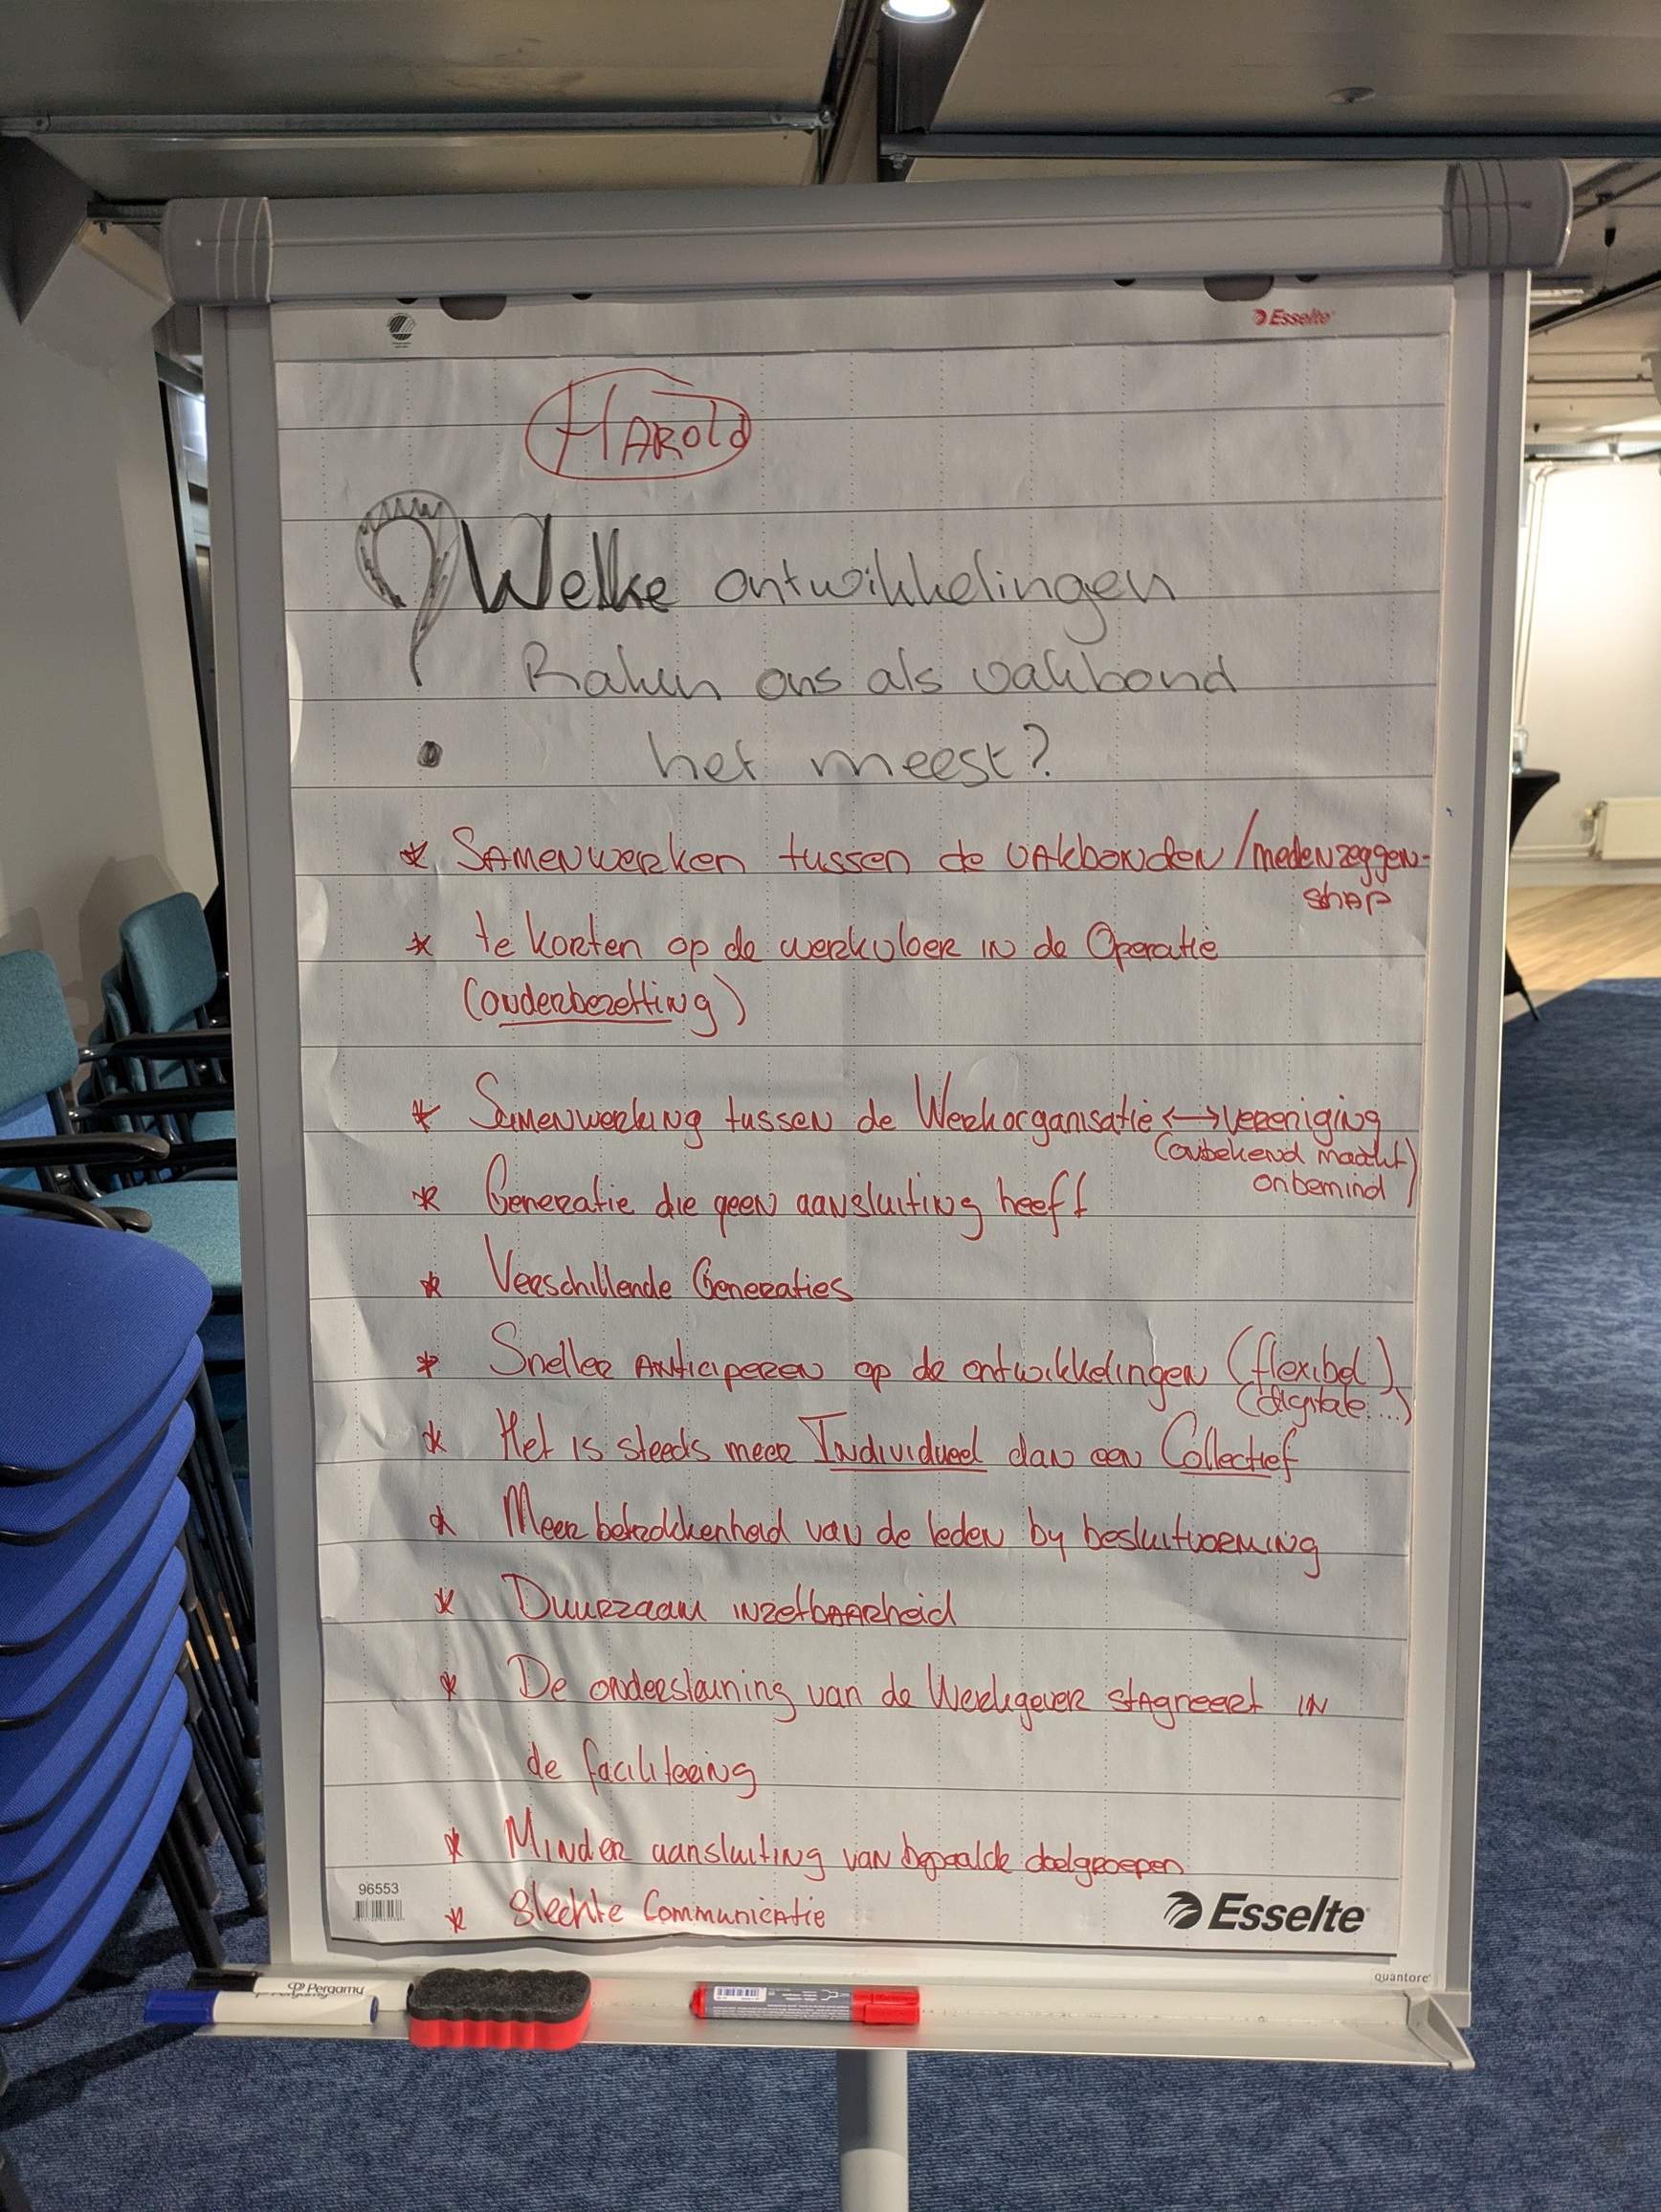 Esselte
HAROLD
? Welke ontwikkelingen
Raken ons als vakbond
het meest?
* Samenwerken tussen de vakbonden/medenzeggen-
shap
* te korten op de werkvloer in de Operatie
(onderbezetting)
* Samenwerking tussen de Werkorganisatie <-> vereniging
(onbekend maakt
onbemind)
* Generatie die geen aansluiting heeft
* Verschillende Generaties
* Sneller anticiperen op de ontwikkelingen (flexibel)
(digitale...)
* Het is steeds meer Individueel dan een Collectief
* Meer betrokkenheid van de leden by besluitvorming
* Duurzaam inzetbaarheid
* De ondersteuning van de Werkgever stagneert in
de facilitering
* Minder aansluiting van bepaalde doelgroepen
* Slechte Communicatie
96553
Esselte
quantore
Pergamy